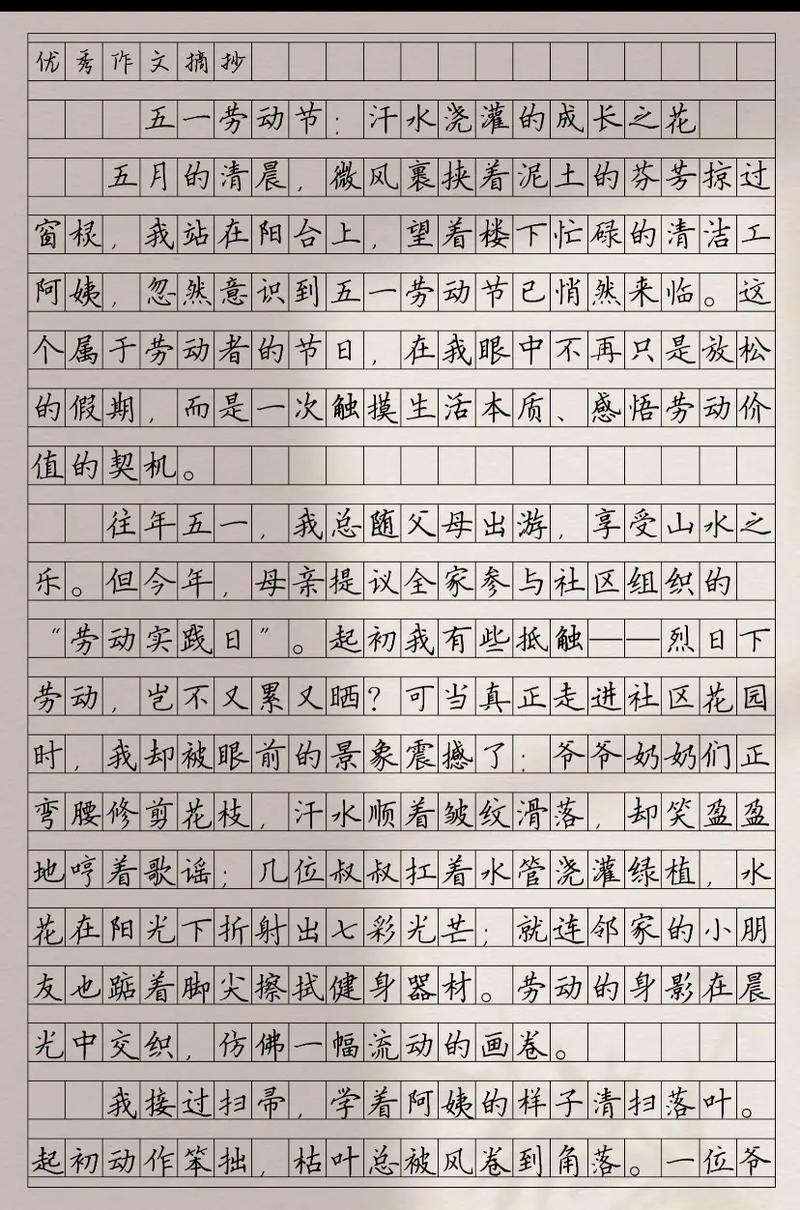 优秀作文摘抄
五一劳动节：汗水浇灌的成长之花
五月的清晨，微风裹挟着泥土的芬芳掠过
窗棂，我站在阳台上，望着楼下忙碌的清洁工
阿姨，忽然意识到五一劳动节已悄然来临。这
个属于劳动者的节日，在我眼中不再只是放松
的假期，而是一次触摸生活本质、感悟劳动价
值的契机。
往年五一，我总随父母出游，享受山水之
乐。但今年，母亲提议全家参与社区组织的
“劳动实践日”。起初我有些抵触——烈日下
劳动，岂不又累又晒？可当真正走进社区花园
时，我却被眼前的景象震撼了：爷爷奶奶们正
弯腰修剪花枝，汗水顺着皱纹滑落，却笑盈盈
地哼着歌谣；几位叔叔扛着水管浇灌绿植，水
花在阳光下折射出七彩光芒；就连邻家的小朋
友也踮着脚尖擦拭健身器材。劳动的身影在晨
光中交织，仿佛一幅流动的画卷。
我接过扫帚，学着阿姨的样子清扫落叶。
起初动作笨拙，枯叶总被风卷到角落。一位爷